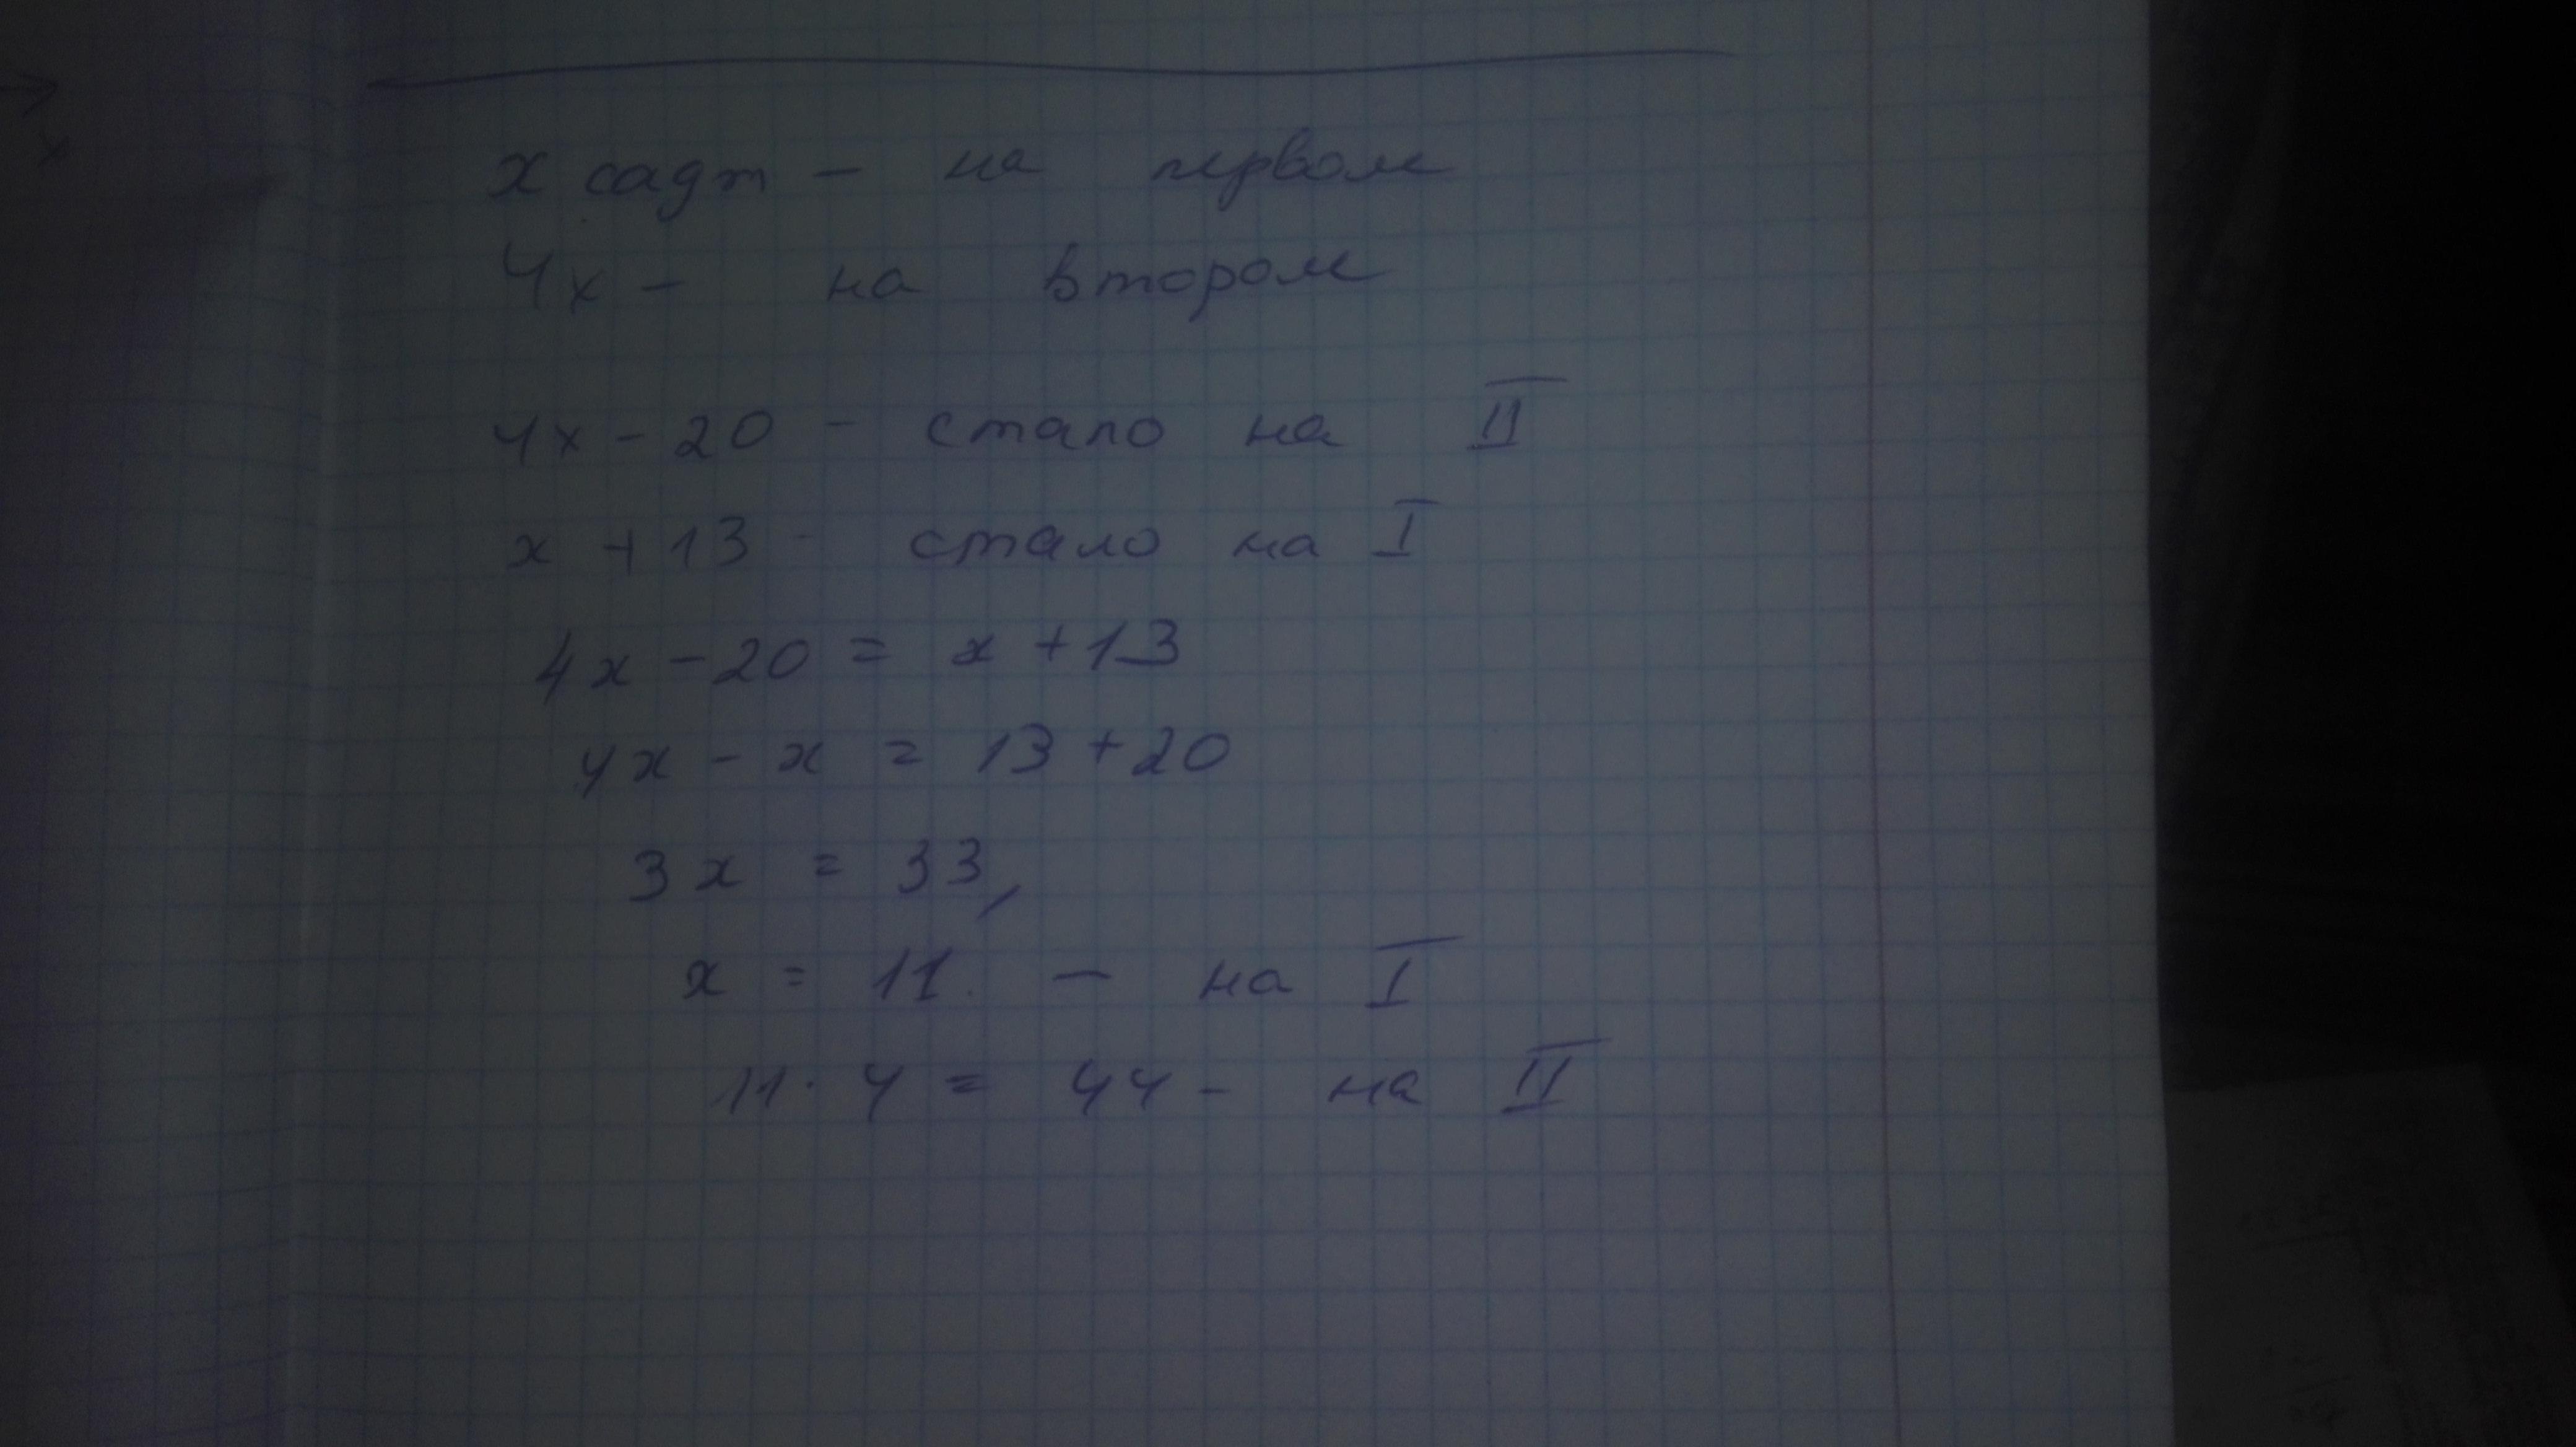 x садт - на первом
4x - на втором
4x - 20 - стало на II
x + 13 - стало на I
4x - 20 = x + 13
4x - x = 13 + 20
3x = 33,
x = 11. - на I
11 · 4 = 44 - на II
x